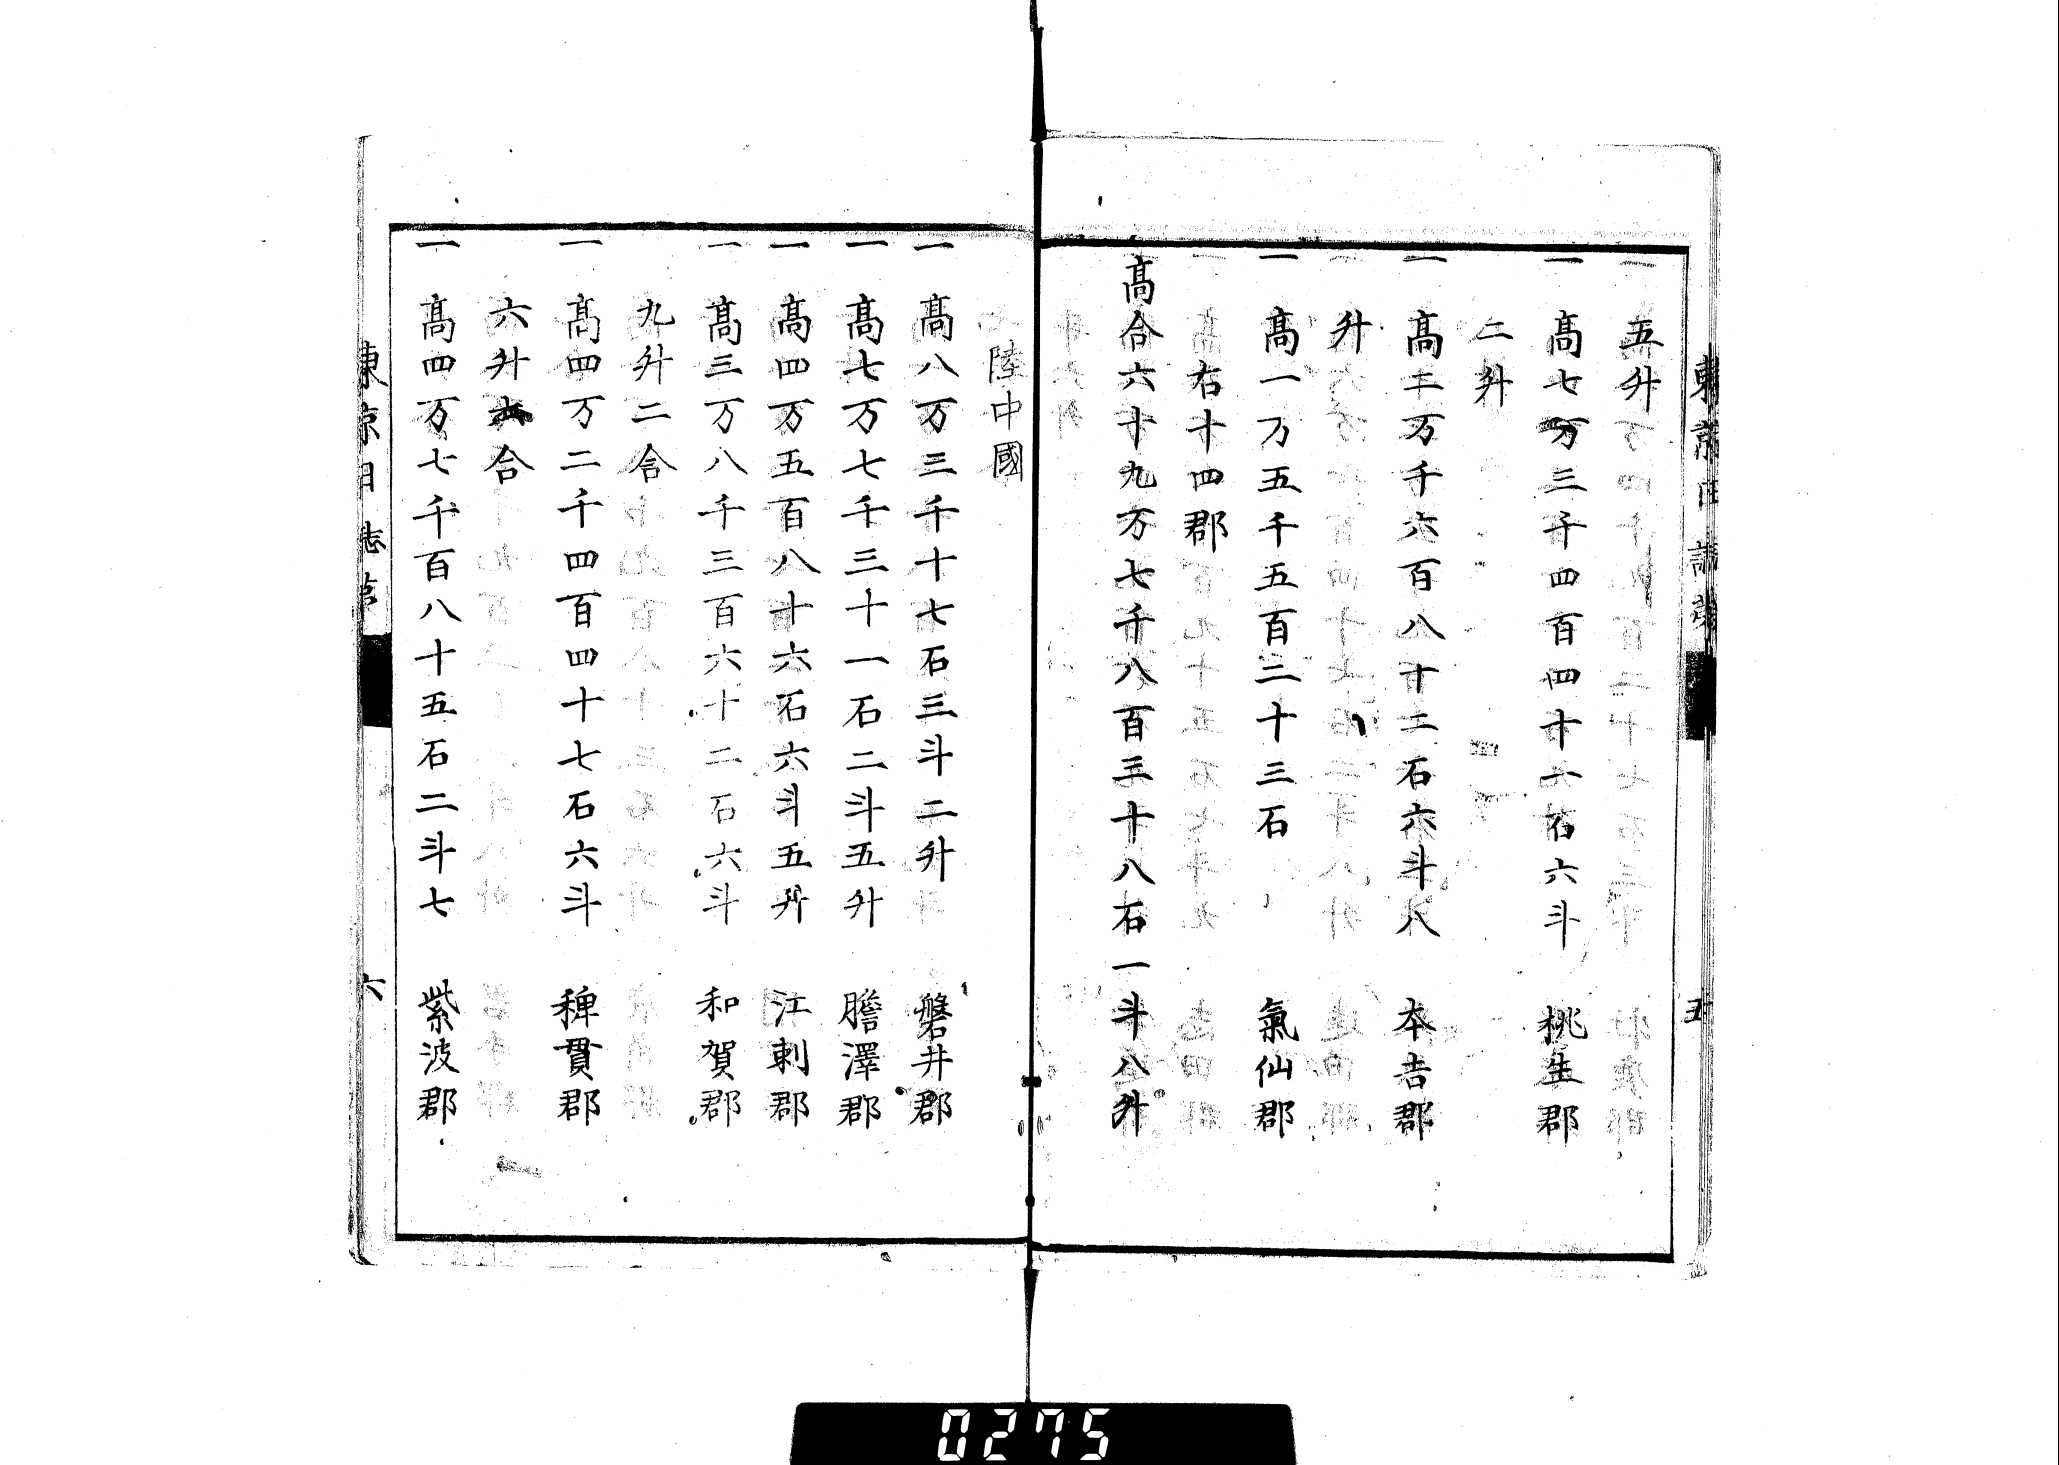 五升
一 高七万三千四百四十一石六斗 桃生郡
二升
一 高二万千六百八十二石六斗八 本吉郡
升
一 高一万五千五百二十三石 氣仙郡
右十四郡
高合六十九万七千八百三十八石一斗八升
五
陸中國
一 高八万三千十七石三斗二升 磐井郡
一 高七万七千三十一石二斗五升 膽澤郡
一 高四万五百八十六石六斗五升 江刺郡
一 高三万八千三百六十二石六斗 和賀郡
九升二合
一 高四万二千四百四十七石六斗 稗貫郡
六升六合
一 高四万七千百八十五石二斗七 紫波郡
東京日誌第
六
0275